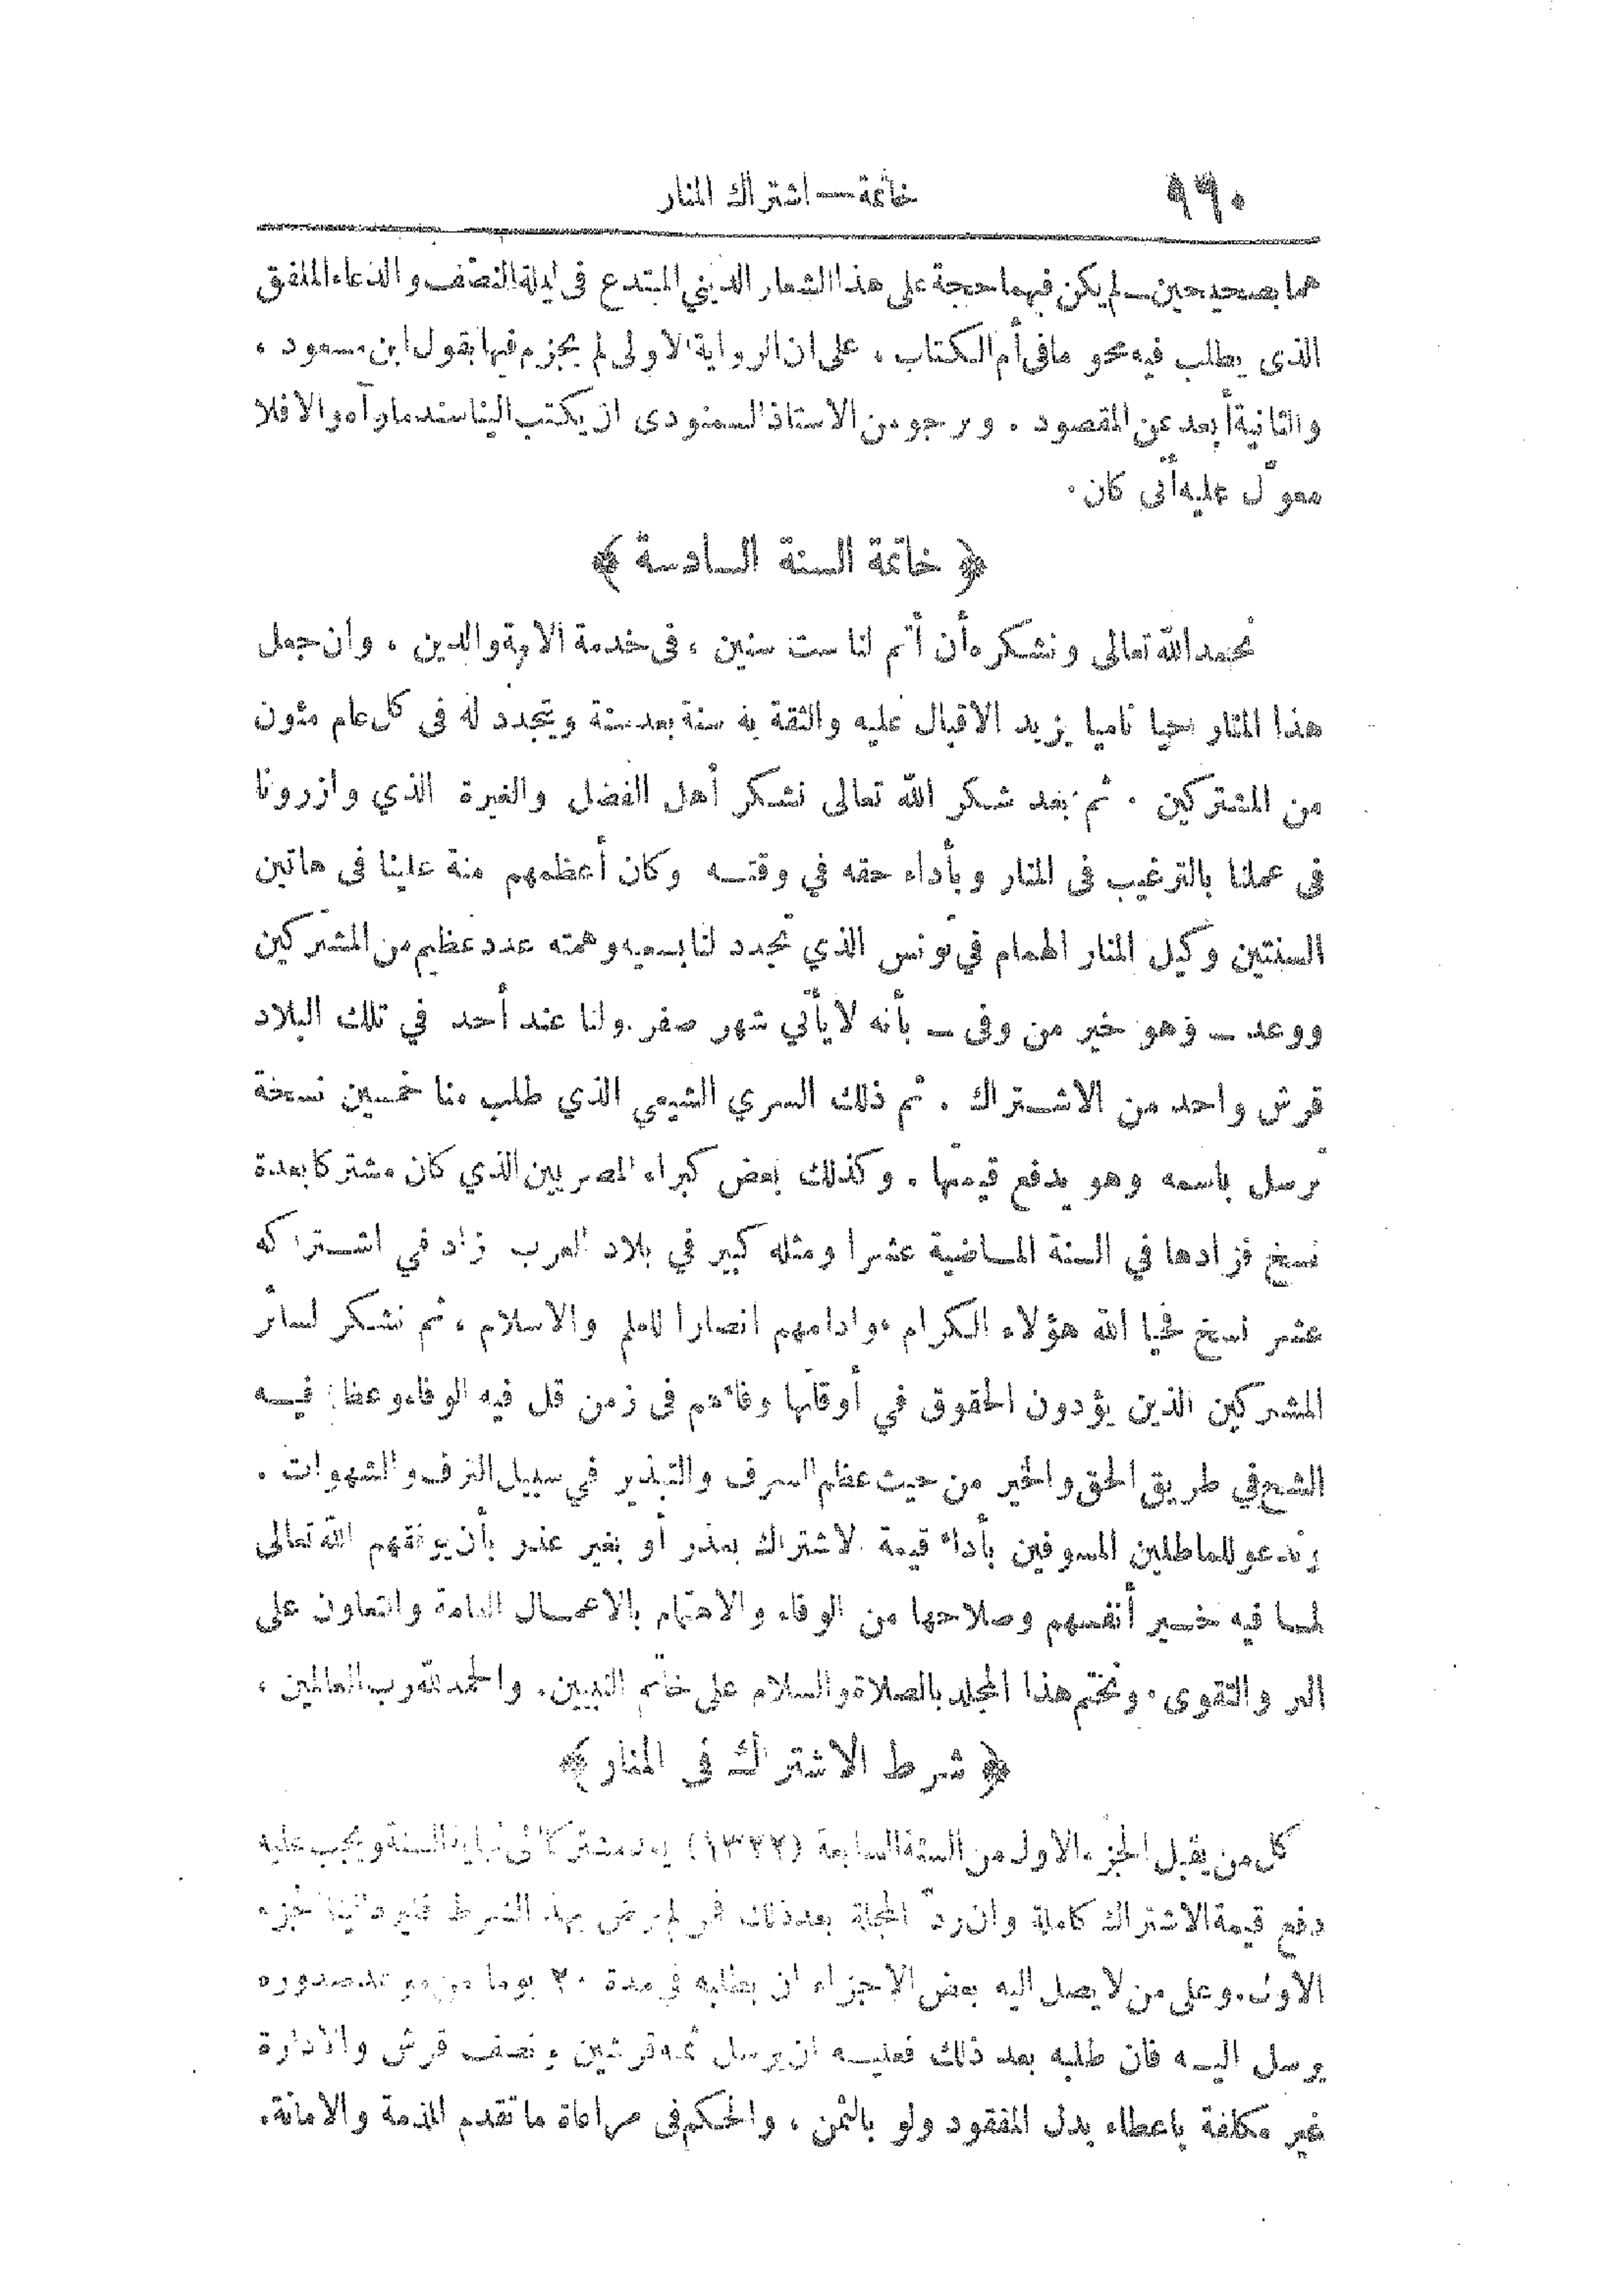 ٩٦٠
خاتمة — اشتراك المنار
هما بصحيحين ــ لم يكن فيهما حجة على هذا الشعار الديني المبتدع فى ليلة النصف والدعاء الملفق
الذى يطلب فيه محو مافى أم الكتاب ، على ان الرواية الاولى لم يجزم فيها بقول ابن مسعود ،
والثانية أبعد عن المقصود . ونرجو من الاستاذ السمنودى ان يكتب الينا سند مارآه والا فلا
معوّل عليه أنّى كان .
﴿ خاتمة السنة السادسة ﴾
نحمد الله تعالى ونشكره أن أتم لنا ست سنين ، فى خدمة الامة والدين ، وان جعل
هذا المنار حيا ناميا يزيد الاقبال عليه والثقة به سنة بعد سنة ويتجدد له فى كل عام مئون
من المشتركين . ثم بعد شكر الله تعالى نشكر أهل الفضل والغيرة الذي وازرونا
فى عملنا بالترغيب فى المنار وبأداء حقه في وقته وكان أعظمهم منة علينا فى هاتين
السنتين وكيل المنار الهمام في تونس الذي تجدد لنا بسعيه وهمته عدد عظيم من المشتركين
ووعد ــ وهو خير من وفى ــ بأنه لا يأتي شهر صفر ولنا عند أحد في تلك البلاد
قرش واحد من الاشتراك . ثم ذلك السري الشيعي الذي طلب منا خمسين نسخة
ترسل باسمه وهو يدفع قيمتها . وكذلك بعض كبراء المصريين الذي كان مشتركا بعدة
نسخ فزادها في السنة الماضية عشرا ومثله كبير في بلاد العرب زاد في اشتراكه
عشر نسخ فحيا الله هؤلاء الكرام ، وادامهم انصارا للعلم والاسلام ، ثم نشكر لسائر
المشتركين الذين يؤدون الحقوق في أوقاتها وفاءهم فى زمن قل فيه الوفاء وعظم فيه
الشح في طريق الحق والخير من حيث عظم السرف والتبذير في سبيل الترف والشهوات .
وندعو للماطلين المسوفين بأداء قيمة الاشتراك بعذر أو بغير عذر بأن يوفقهم الله تعالى
لما فيه خير أنفسهم وصلاحها من الوفاء والاهتمام بالاعمال العامة والتعاون على
البر والتقوى . ونختم هذا المجلد بالصلاة والسلام على خاتم النبيين . والحمد لله رب العالمين ،
﴿ شرط الاشتراك فى المنار ﴾
كل من يقبل الجزء الاول من السنة السابعة (١٣٢٢) يعد مشتركا الى نهاية السنة ويجب عليه
دفع قيمة الاشتراك كاملة وان ردّ المجلة بعد ذلك فمن لم يرض بهذا الشرط فليرد الينا الجزء
الاول . وعلى من لا يصل اليه بعض الاجزاء ان يطلبه في مدة ٢٠ يوما من موعد صدوره
يرسل اليه فان طلبه بعد ذلك فعليه ان يرسل ثمنه قرشين ونصف قرش والادارة
غير مكلفة باعطاء بدل المفقود ولو بالثمن ، والحكم فى مراعاة ما تقدم الذمة والامانة .